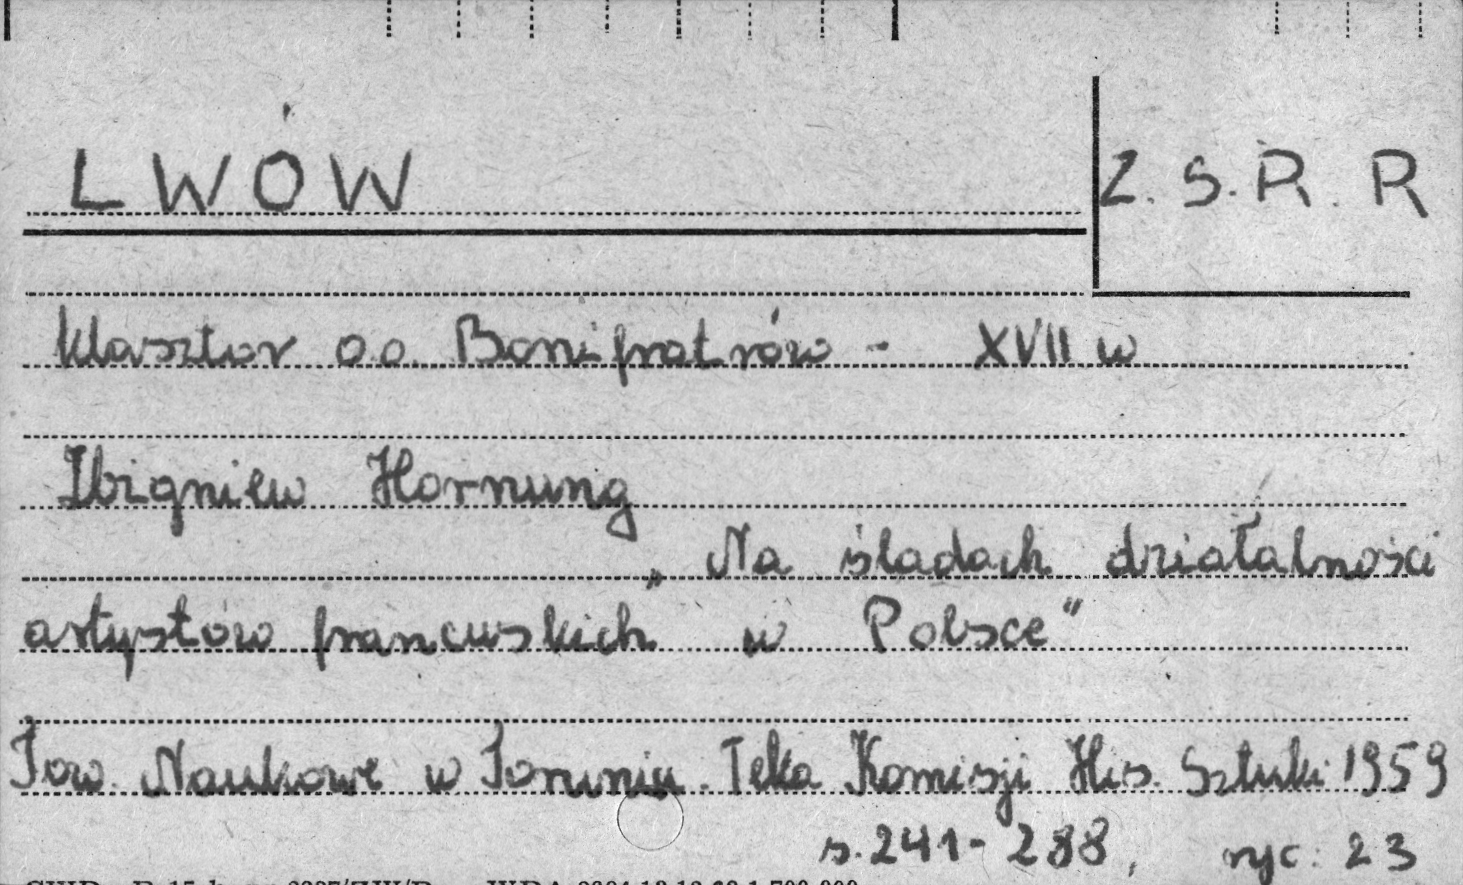 LWÓW
Z.S.R.R
klasztor o.o. Bonifratrów - XVII w
Zbigniew Hornung
„Na śladach działalności
artystów francuskich w Polsce"
Tow. Naukowe w Toruniu. Teka Komisji His. Sztuki 1959
s. 241-288, ryc: 23